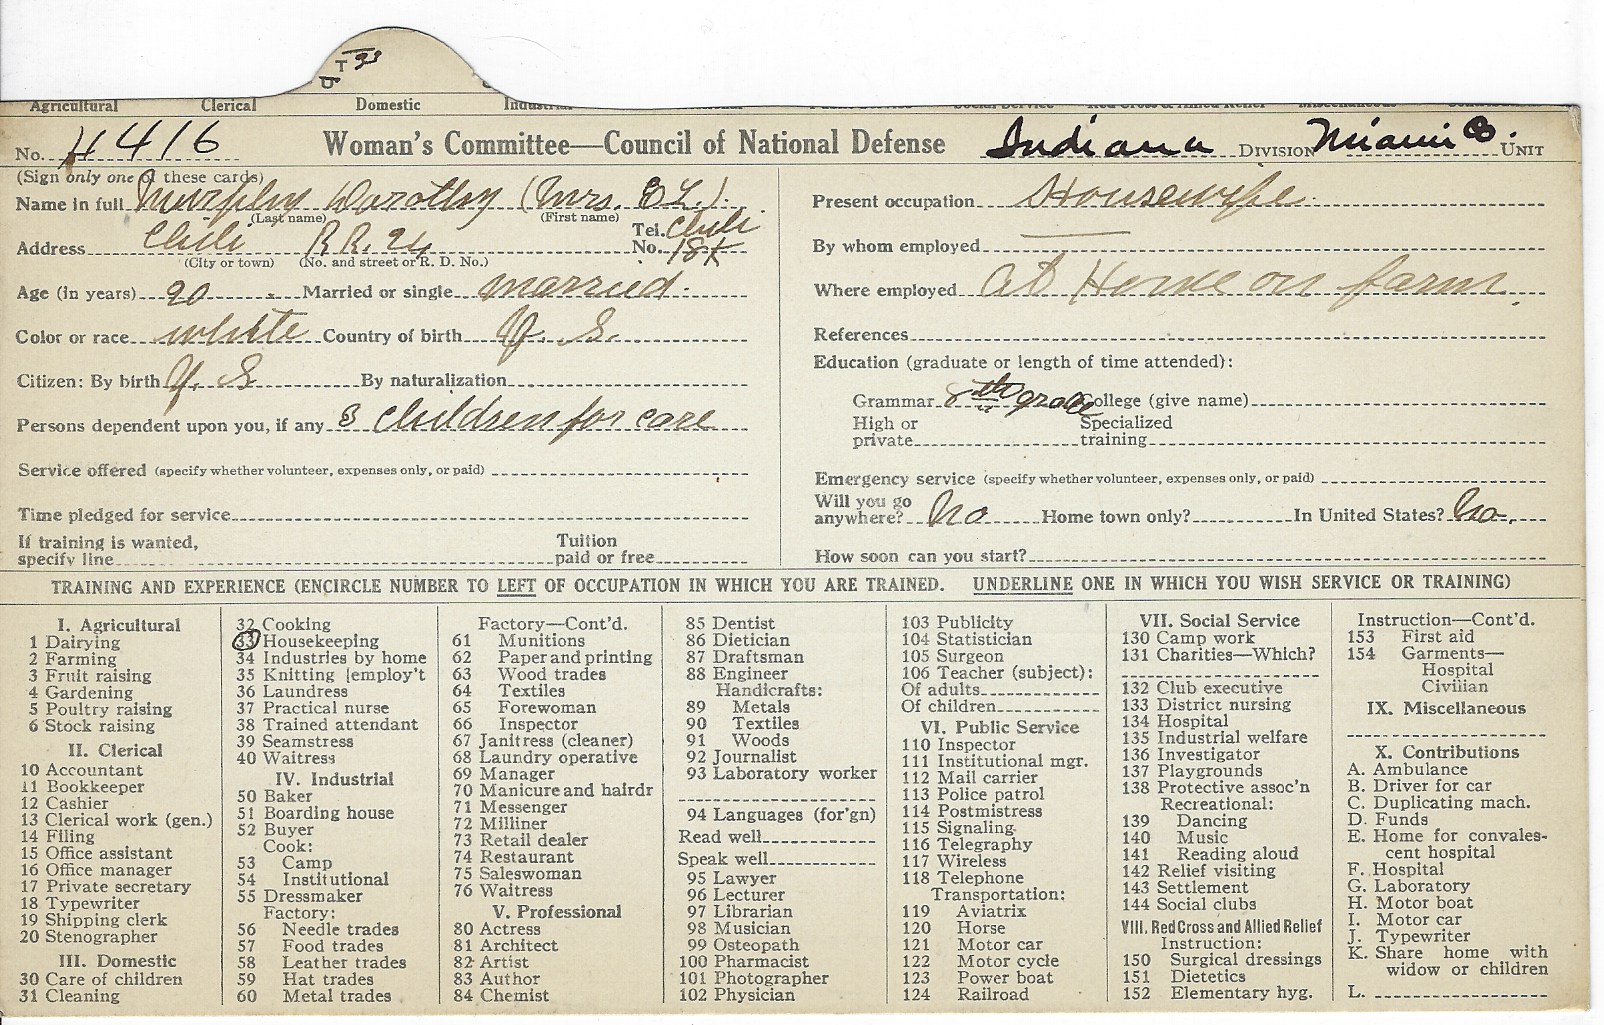 Agricultural Clerical Domestic
No. 4416 Woman's Committee—Council of National Defense Indiana DIVISION Miami Co. UNIT
(Sign only one of these cards)
Name in full Murphy Dorothy (Mrs. O L.)
(Last name) (First name)
Address Chili R R. 24 Tel. No. Chili 18
(City or town) (No. and street or R. D. No.)
Age (in years) 20 Married or single married.
Color or race white Country of birth U. S.
Citizen: By birth U. S By naturalization
Persons dependent upon you, if any 3 children for care
Service offered (specify whether volunteer, expenses only, or paid)
Time pledged for service
If training is wanted, specify line Tuition paid or free
Present occupation Housewife.
By whom employed
Where employed At Home on farm.
References
Education (graduate or length of time attended):
Grammar 8th grade College (give name)
High or private Specialized training
Emergency service (specify whether volunteer, expenses only, or paid)
Will you go anywhere? No Home town only? In United States? No.
How soon can you start?
TRAINING AND EXPERIENCE (ENCIRCLE NUMBER TO LEFT OF OCCUPATION IN WHICH YOU ARE TRAINED. UNDERLINE ONE IN WHICH YOU WISH SERVICE OR TRAINING)
I. Agricultural
1 Dairying
2 Farming
3 Fruit raising
4 Gardening
5 Poultry raising
6 Stock raising
II. Clerical
10 Accountant
11 Bookkeeper
12 Cashier
13 Clerical work (gen.)
14 Filing
15 Office assistant
16 Office manager
17 Private secretary
18 Typewriter
19 Shipping clerk
20 Stenographer
III. Domestic
30 Care of children
31 Cleaning
32 Cooking
33 Housekeeping
34 Industries by home
35 Knitting [employ't
36 Laundress
37 Practical nurse
38 Trained attendant
39 Seamstress
40 Waitress
IV. Industrial
50 Baker
51 Boarding house
52 Buyer
Cook:
53 Camp
54 Institutional
55 Dressmaker
Factory:
56 Needle trades
57 Food trades
58 Leather trades
59 Hat trades
60 Metal trades
Factory—Cont'd.
61 Munitions
62 Paper and printing
63 Wood trades
64 Textiles
65 Forewoman
66 Inspector
67 Janitress (cleaner)
68 Laundry operative
69 Manager
70 Manicure and hairdr
71 Messenger
72 Milliner
73 Retail dealer
74 Restaurant
75 Saleswoman
76 Waitress
V. Professional
80 Actress
81 Architect
82 Artist
83 Author
84 Chemist
85 Dentist
86 Dietician
87 Draftsman
88 Engineer
Handicrafts:
89 Metals
90 Textiles
91 Woods
92 Journalist
93 Laboratory worker
94 Languages (for'gn)
Read well
Speak well
95 Lawyer
96 Lecturer
97 Librarian
98 Musician
99 Osteopath
100 Pharmacist
101 Photographer
102 Physician
103 Publicity
104 Statistician
105 Surgeon
106 Teacher (subject):
Of adults
Of children
VI. Public Service
110 Inspector
111 Institutional mgr.
112 Mail carrier
113 Police patrol
114 Postmistress
115 Signaling
116 Telegraphy
117 Wireless
118 Telephone
Transportation:
119 Aviatrix
120 Horse
121 Motor car
122 Motor cycle
123 Power boat
124 Railroad
VII. Social Service
130 Camp work
131 Charities—Which?
132 Club executive
133 District nursing
134 Hospital
135 Industrial welfare
136 Investigator
137 Playgrounds
138 Protective assoc'n
Recreational:
139 Dancing
140 Music
141 Reading aloud
142 Relief visiting
143 Settlement
144 Social clubs
VIII. Red Cross and Allied Relief
Instruction:
150 Surgical dressings
151 Dietetics
152 Elementary hyg.
Instruction—Cont'd.
153 First aid
154 Garments—
Hospital
Civilian
IX. Miscellaneous
X. Contributions
A. Ambulance
B. Driver for car
C. Duplicating mach.
D. Funds
E. Home for convales-
cent hospital
F. Hospital
G. Laboratory
H. Motor boat
I. Motor car
J. Typewriter
K. Share home with
widow or children
L.